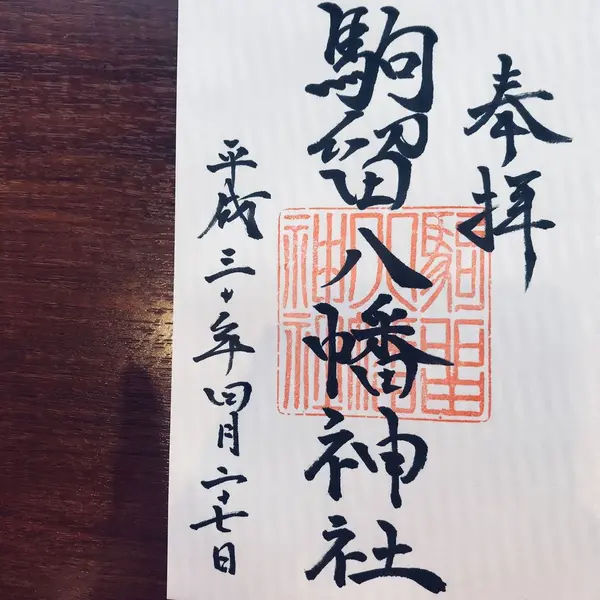 奉拝
駒留八幡神社
平成三十年四月二十七日
駒留
八幡
神社